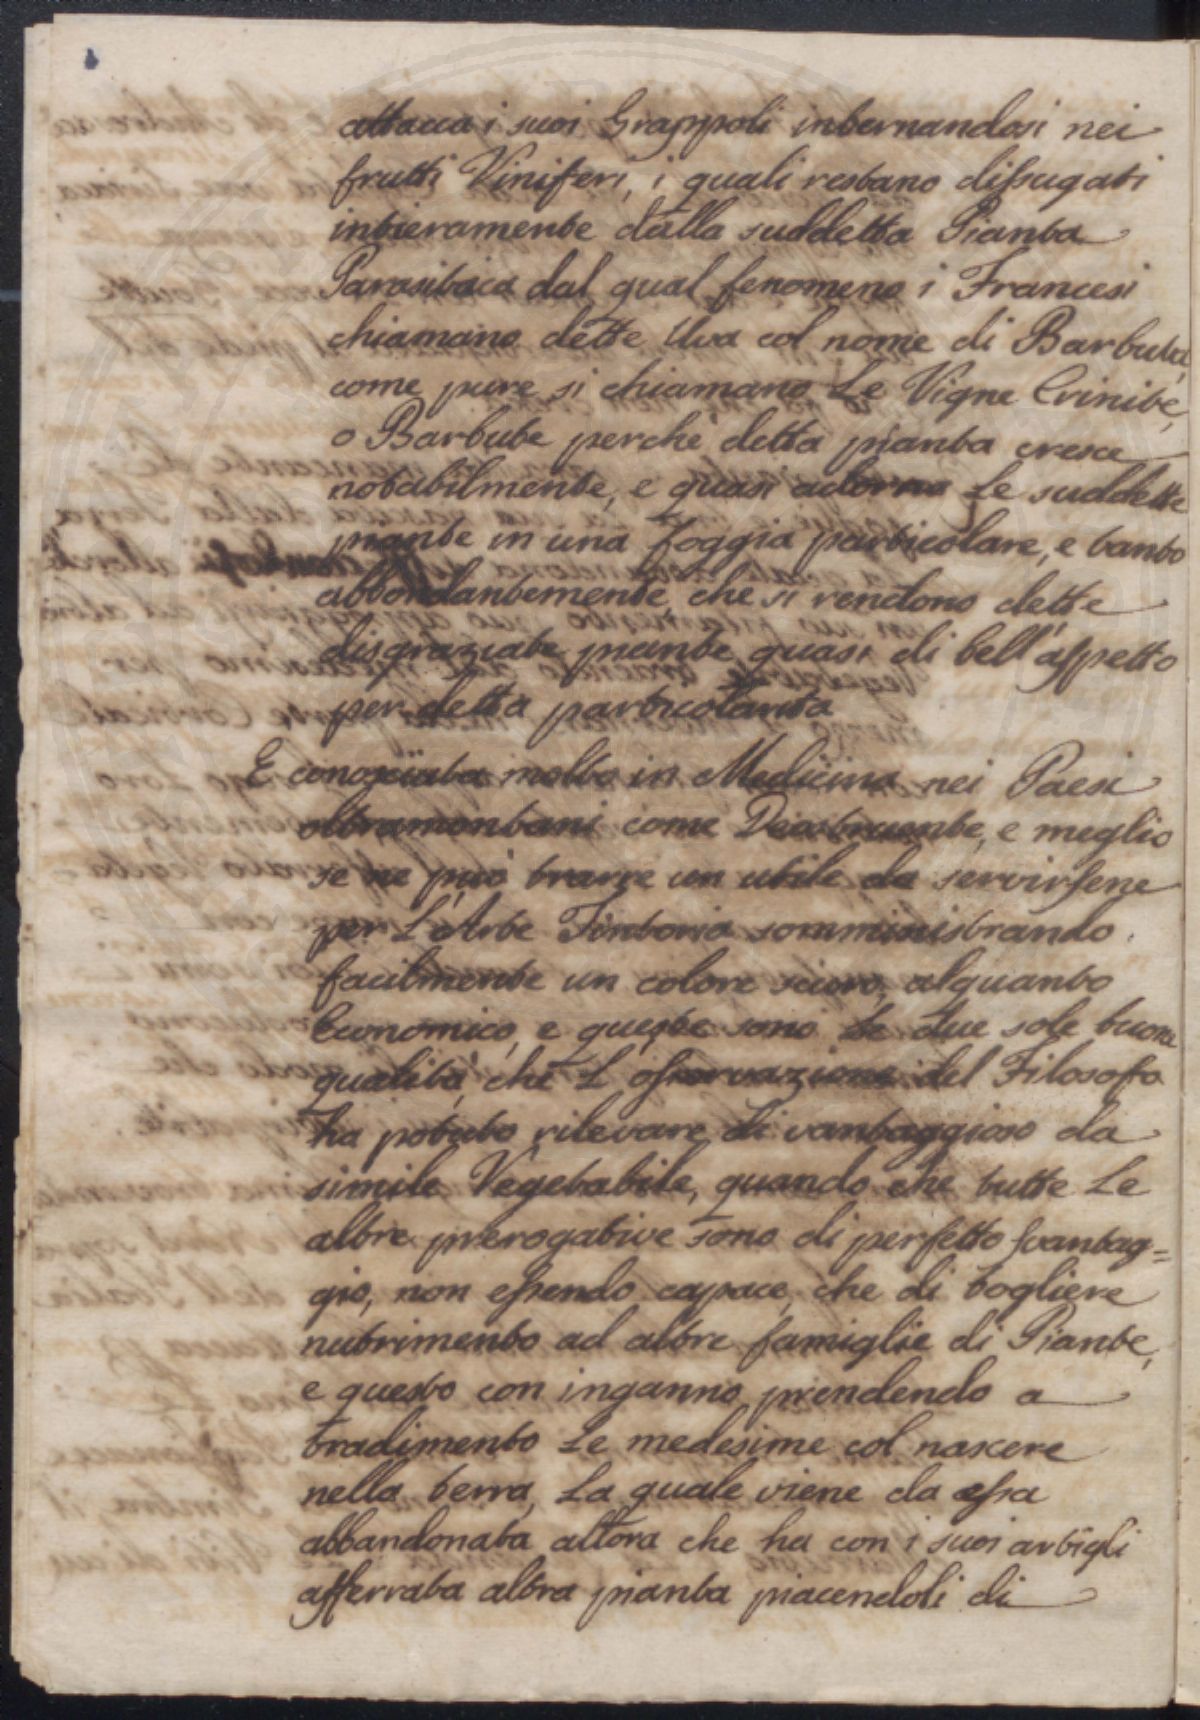 attacca i suoi Grappoli internandosi nei
frutti Viniferi, i quali restano dissugati
intieramente dalla suddetta Pianta
Parasitaca dal qual fenomeno i Francesi
chiamano dette Uva col nome di Barbuta,
come pure si chiamano Le Vigne Crinite,
o Barbute perchè detta pianta cresce
notabilmente, e quasi adorna Le suddette
piante in una foggia particolare, e tanto
abbondantemente, che si rendono dette
disgraziate piante quasi di bell'aspetto
per detta particolarità
E conosciuta molto in Medicina nei Paesi
oltramontani come Deostruente, e meglio
se ne può trarre un utile da servirsene
per L'Arte Tintoria somministrando
facilmente un colore scuro, alquanto
Economico, e queste sono Le due sole buone
qualità, che L osservazione del Filosofo
ha potuto rilevare di vantaggioso da
simile Vegetabile, quando che tutte Le
altre prerogative sono di perfetto svantag=
gio, non essendo capace, che di togliere
nutrimento ad altre famiglie di Piante,
e questo con inganno prendendo a
tradimento Le medesime col nascere
nella terra, La quale viene da essa
abbandonata allora che ha con i suoi artigli
afferrata altra pianta piacendoli di